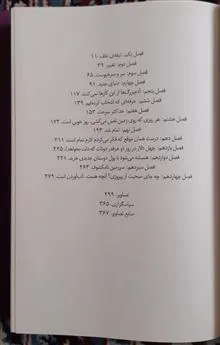 فصل یکم: تیغه‌ی علف. ۱۱
فصل دوم: تغییر. ۳۹
فصل سوم: ببر و سرخپوست. ۶۵
فصل چهارم: دنیای جدید. ۹۱
فصل پنجم: آدم‌بزرگ‌ها از این کارها نمی‌کنند. ۱۱۷
فصل ششم: حرفه‌ای که انتخاب کرده‌ایم. ۱۳۹
فصل هفتم: حداکثر سرعت. ۱۵۳
فصل هشتم: هر روزی که روی زمین نفس می‌کشی، روز خوبی است. ۱۷۳
فصل نهم: تمام شد. ۱۹۳
فصل دهم: درست همان موقع که فکر می‌کردم کارم تمام است. ۲۱۱
فصل یازدهم: چهل دلار در روز (و هرقدر دونات که دلت بخواهد). ۲۲۵
فصل دوازدهم: همیشه می‌شود با پول دوستان جدیدی خرید. ۲۴۱
فصل سیزدهم: سرزمین نامکشوف. ۲۶۳
فصل چهاردهم: چه جای صحبت از پیروزی؟ آنچه هست، تاب‌آوردن است. ۲۷۹
تصاویر. ۲۹۹
سپاسگزاری. ۳۶۵
منابع تصاویر. ۳۶۷